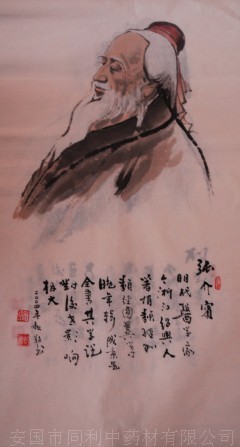 张介宾
明代醫学家
今浙江绍兴人
著有類经
類经圖翼等
晚年辑成景岳
全書其学说
對後世影响
极大
二〇〇四年秋
安国市同利中药材有限公司